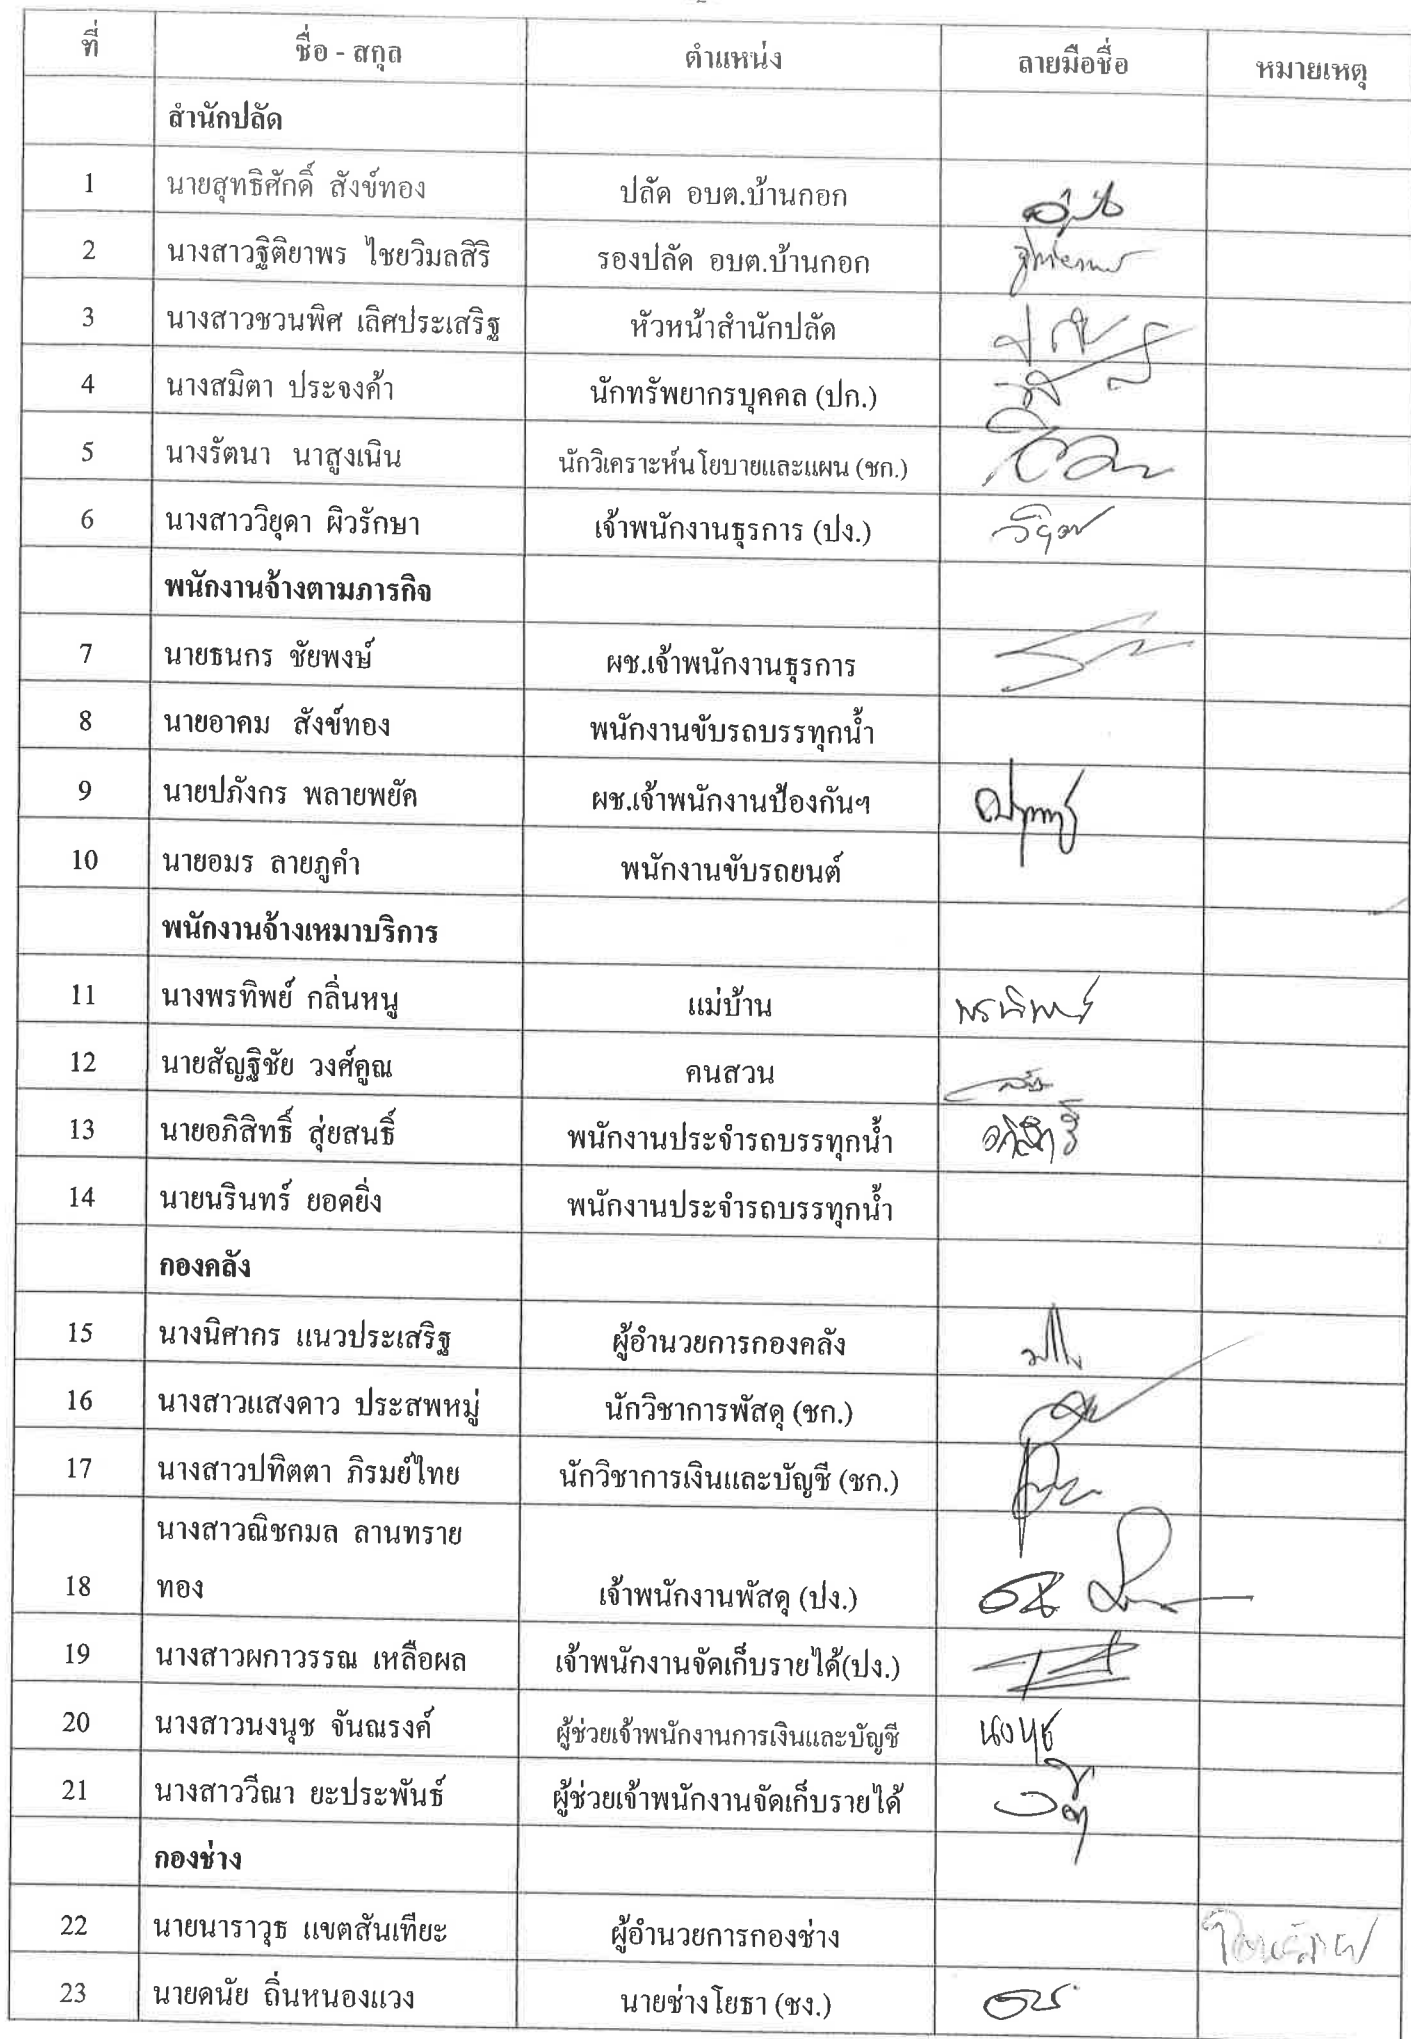 ที่ ชื่อ - สกุล ตำแหน่ง ลายมือชื่อ หมายเหตุ
สำนักปลัด
1 นายสุทธิศักดิ์ สังข์ทอง ปลัด อบต.บ้านกอก
2 นางสาวฐิติยาพร ไชยวิมลสิริ รองปลัด อบต.บ้านกอก
3 นางสาวชวนพิศ เลิศประเสริฐ หัวหน้าสำนักปลัด
4 นางสมิตา ประจงค้า นักทรัพยากรบุคคล (ปก.)
5 นางรัตนา นาสูงเนิน นักวิเคราะห์นโยบายและแผน (ชก.)
6 นางสาววิยุดา ผิวรักษา เจ้าพนักงานธุรการ (ปง.)
พนักงานจ้างตามภารกิจ
7 นายธนกร ชัยพงษ์ ผช.เจ้าพนักงานธุรการ
8 นายอาคม สังข์ทอง พนักงานขับรถบรรทุกน้ำ
9 นายปภังกร พลายพยัค ผช.เจ้าพนักงานป้องกันฯ
10 นายอมร ลายภูคำ พนักงานขับรถยนต์
พนักงานจ้างเหมาบริการ
11 นางพรทิพย์ กลิ่นหนู แม่บ้าน พรทิพย์
12 นายสัญฐิชัย วงศ์คูณ คนสวน
13 นายอภิสิทธิ์ สุ่ยสนธิ์ พนักงานประจำรถบรรทุกน้ำ อภิสิทธิ์
14 นายนรินทร์ ยอดยิ่ง พนักงานประจำรถบรรทุกน้ำ
กองคลัง
15 นางนิศากร แนวประเสริฐ ผู้อำนวยการกองคลัง
16 นางสาวแสงดาว ประสพหมู่ นักวิชาการพัสดุ (ชก.)
17 นางสาวปทิตตา ภิรมย์ไทย นักวิชาการเงินและบัญชี (ชก.)
นางสาวณิชกมล ลานทราย
18 ทอง เจ้าพนักงานพัสดุ (ปง.)
19 นางสาวผกาวรรณ เหลือผล เจ้าพนักงานจัดเก็บรายได้(ปง.)
20 นางสาวนงนุช จันณรงค์ ผู้ช่วยเจ้าพนักงานการเงินและบัญชี นงนุช
21 นางสาววีณา ยะประพันธ์ ผู้ช่วยเจ้าพนักงานจัดเก็บรายได้
กองช่าง
22 นายนาราวุธ แขตสันเทียะ ผู้อำนวยการกองช่าง
23 นายดนัย ถิ่นหนองแวง นายช่างโยธา (ชง.)